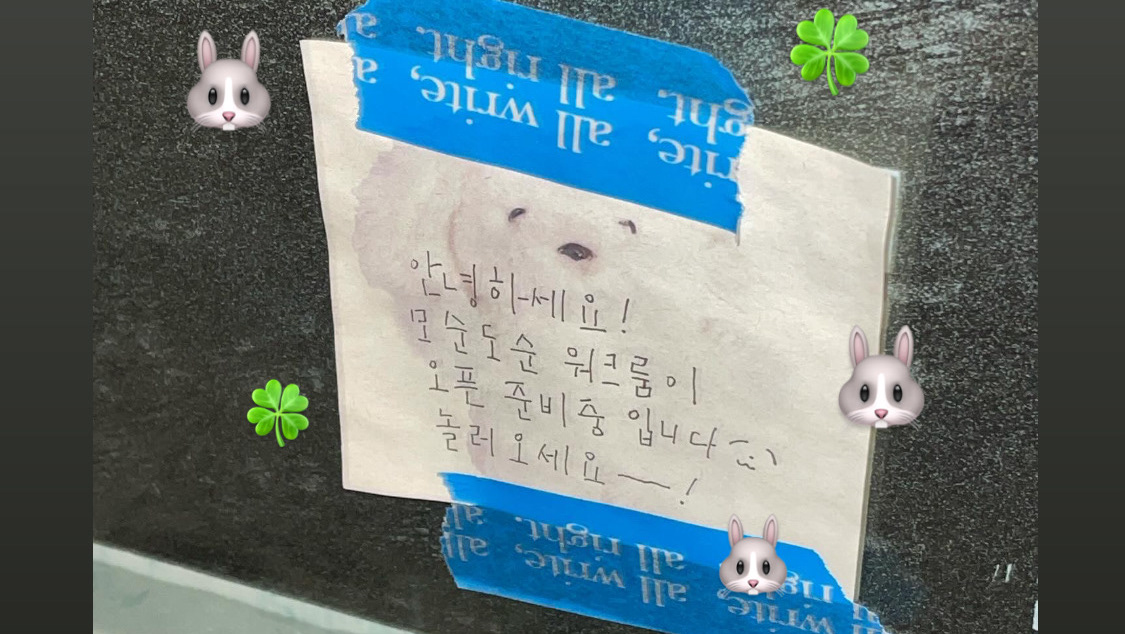 ght. all right. a
rite, all write, a
안녕하세요!
모순도순 워크룸이
오픈 준비중 입니다
놀러 오세요~!
all right. all
all write, all